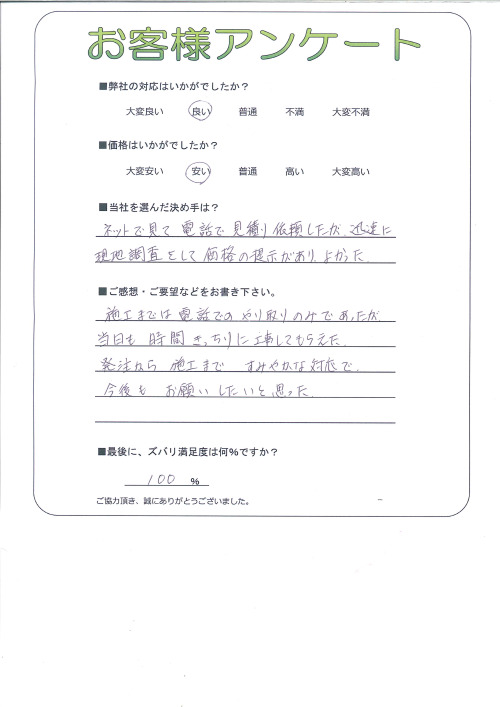 お客様アンケート
■弊社の対応はいかがでしたか？
大変良い 良い 普通 不満 大変不満
■価格はいかがでしたか？
大変安い 安い 普通 高い 大変高い
■当社を選んだ決め手は？
ネットで見て 電話で見積り依頼したが、迅速に
現地調査をして価格の提示があり、よかった。
■ご感想・ご要望などをお書き下さい。
施工までは電話でのやり取りのみであったが、
当日も 時間きっちりに工事してもらえた。
発注から 施工まで すみやかな対応で、
今後も お願いしたいと思った。
■最後に、ズバリ満足度は何％ですか？
100 ％
ご協力頂き、誠にありがとうございました。